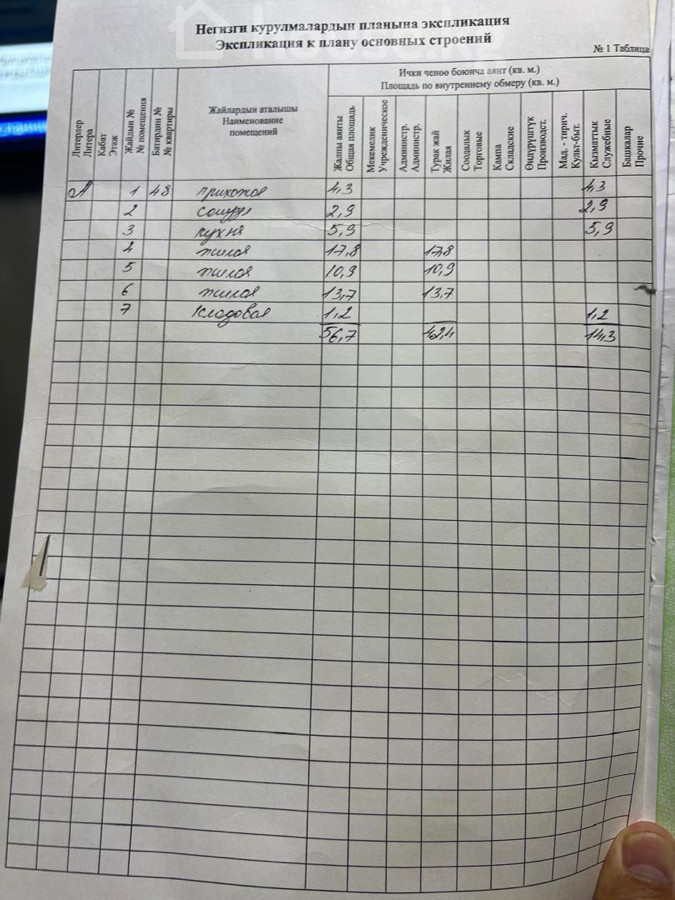 Негизги курулмалардын планына экспликация
Экспликация к плану основных строений
№ 1 Таблица
Литерлер
Литера
Кабат
Этаж
Жайдын №
№ помещения
Батирдин №
№ квартиры
Жайлардын аталышы
Наименование
помещений
Ички ченөө боюнча аянт (кв. м.)
Площадь по внутреннему обмеру (кв. м.)
Жалпы аянты
Общая площадь
Мекемелик
Учрежденическое
Администр.
Администр.
Турак жай
Жилая
Соодалык
Торговые
Кампа
Складские
Өндүрүштүк
Производст.
Мад. - тирич.
Культ-быт.
Кызматтык
Служебные
Башкалар
Прочие
А 1 48 прихожая 4,3 4,3
2 санузел 2,9 2,9
3 кухня 5,9 5,9
4 жилая 17,8 17,8
5 жилая 10,9 10,9
6 жилая 13,7 13,7
7 кладовая 1,2 1,2
56,7 42,4 14,3